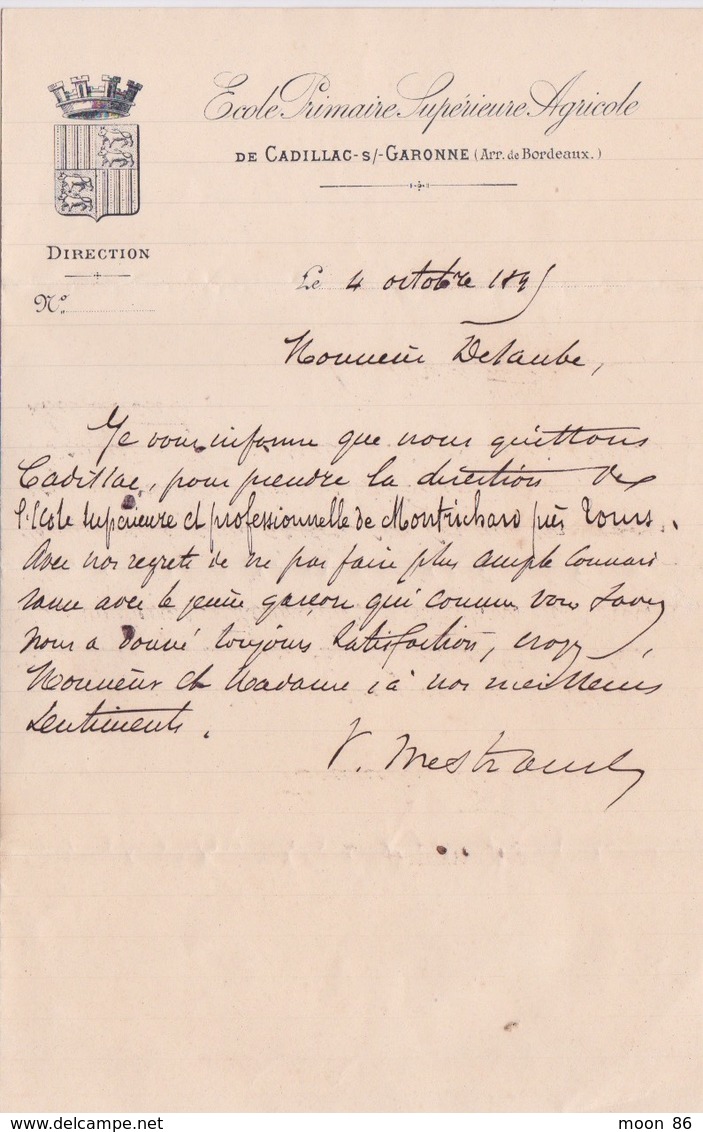 Ecole Primaire Supérieure Agricole
DE CADILLAC-S/-GARONNE (Arr. de Bordeaux.)
DIRECTION
No.
Le 4 octobre 1895
Monsieur Delaube,
Je vous informe que nous quittons
Cadillac, pour prendre la direction de
l'Ecole supérieure et professionnelle de Montrichard près Tours.
Avec nos regrets de ne pas faire plus ample connais
sance avec le jeune garçon qui comme vous savez
nous a donné toujours satisfaction, croyez,
Monsieur et Madame, à nos meilleurs
sentiments.
V. Mestraud
www.delcampe.net
moon 86